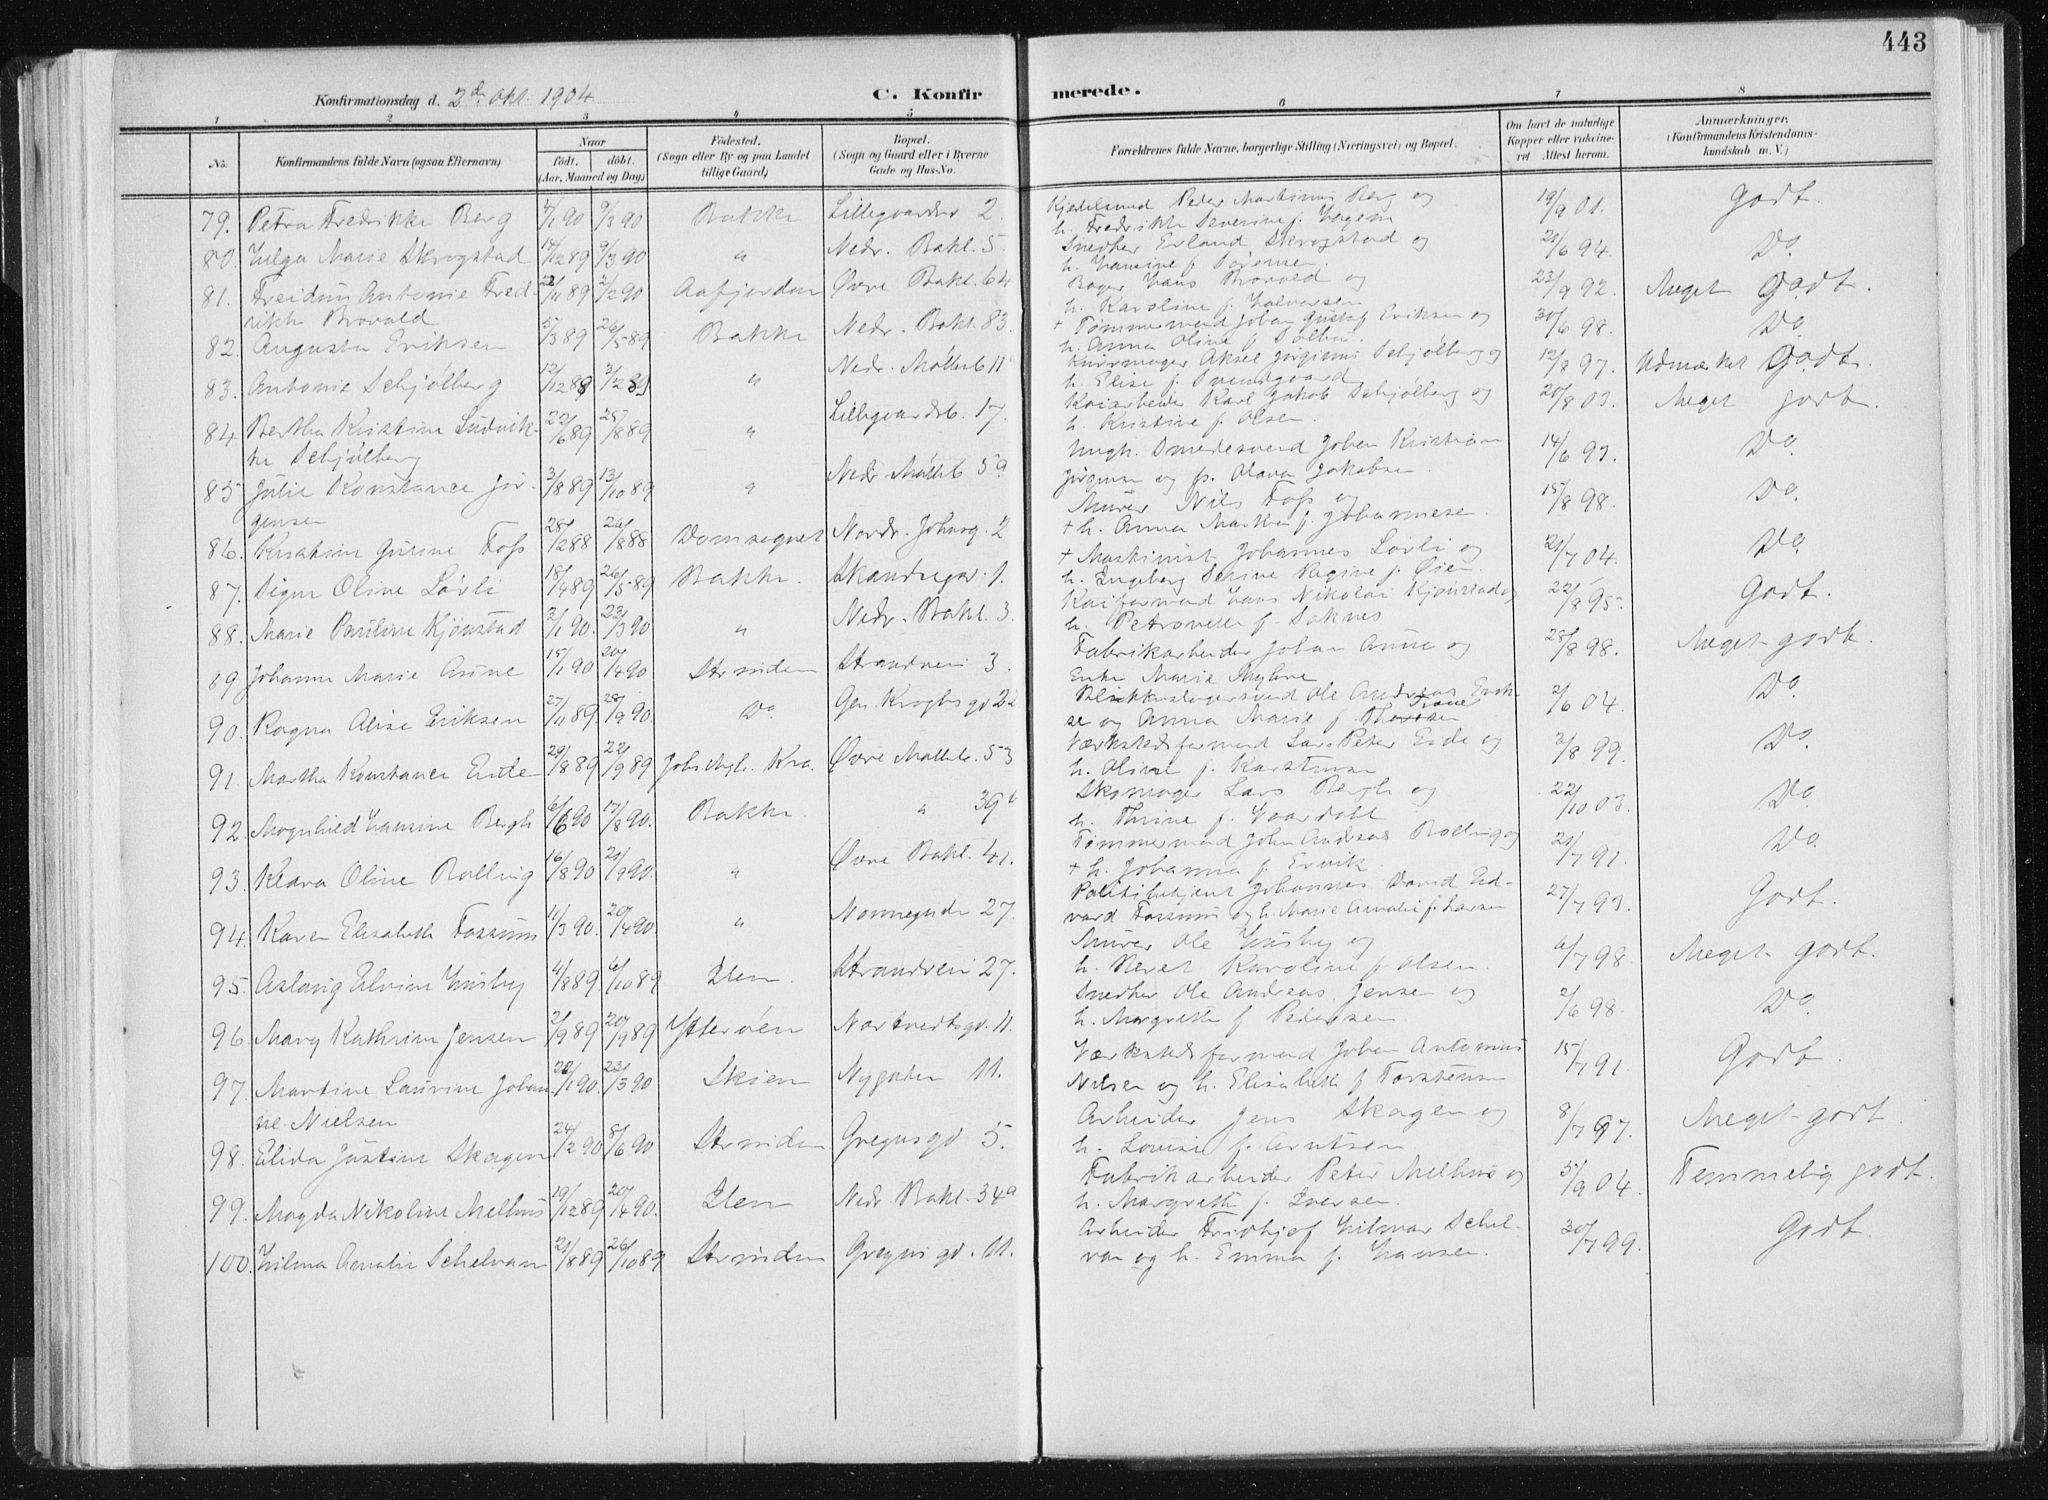 443
Konfirmationsdag d. 2den Okt. 1904
C. Konfirmerede.
1 2 3 4 5 6 7 8
No. Konfirmandens fulde Navn (ogsaa Efternavn) Naar født. døbt. (Aar, Maaned og Dag) Fødested. (Sogn eller By og paa Landet tillige Gaard) Bopæl. (Sogn og Gaard eller i Byerne Gade og Hus-No. Forældrenes fulde Navne, borgerlige Stilling (Næringsvei) og Bopæl. Om havt de naturlige Kopper eller vaccineret Attest herom. Anmærkninger. (Konfirmandens Kristendomskundskab m. V.)
79. Petra Fredrikke Berg 4/1 90 9/3 90 Bakke Lillegaardsb 2. Kjedelsmed Peder Martinus Berg og 19/9 01. Godt.
h. Fredrikke Severine f.
80. Helga Marie Skrogstad 17/12 89 9/3 90 " Nedr. Bakl. 5. Snedker Erland Skrogstad og 21/6 94. Do.
h. Hansine f. Sørensen.
81. Freidun Antonie Fredrikke Brovold 22/11 89 2/2 90 Aafjorden Øvre Bakl. 64 Bager Hans Brovold og 23/9 92. Meget Godt.
h. Karoline f. Halvorsen
82. Augusta Eriksen 5/3 89 26/5 89 Bakke Nedr. Bakl. 83. + Tømmermand Johan Gustaf Eriksen og 30/6 98. Do.
h. Anna Oline f.
83. Antonie Schjølberg 12/12 88 3/2 89 " Nedr. Møllebg 11 Aksel Jørginus Schjølberg og 12/8 97. Udmærket Godt.
h. Elise f. Svendgaard
84. Bertha Kristine Ludvikke Schjølberg 22/6 89 25/8 89 " Lillegaardsb. 17. Kaiarbeider Karl Jakob Schjølberg og 20/8 03. Meget godt.
h. Kristine f. Olsen.
85. Julie Konstance Jørgensen 3/8 89 13/10 89 " Nedr. Møllebg 59. Ungk. Smedesvend Johan Kristian 14/6 93. Do.
Jørgensen og fp. Olava Jakobsen.
86. Kristine Gurine Foss 28/2 88 26/8 88 Domsognet Nordr. Johsg. 2 Murer Nils Foss og 15/8 98. Do.
+ h. Anna Marthea f. Johannesen.
87. Signe Oline Løvli 18/4 89 26/5 89 Bakke. Skandsegd. 1. + Maskinist Johannes Løvli og 21/7 04. Do.
h. Ingeborg Serine Regine f. Øien.
88. Marie Pauline Kjønstad 3/1 90. 23/3 90 " Nedr. Bakl. 3. Kaiformand Hans Nikolai Kjønstad og 22/8 95. Godt.
h. Petronelle f. Saknes
89 Johanne Marie Aune 15/1 90 20/4 90 Strinden Strandvei 3. Fabrikarbeider Johan Aune og 28/8 98. Meget godt.
Enke Marie Myhre
90. Ragna Alise Eriksen 27/11 89. 28/9 90. Do Gen. Kroghs gd 22 Blikkenslagersvend Ole Andreas Erik- 2/6 04. Do.
sen og Anna Marie f.
91. Martha Konstance Eide 29/8 89 22/9 89 Joh. Mgh. Kra. Øvre Møllebg. 53 Værkstedsformand Lars Peter Eide og 3/8 99. Do.
h. Oline f. Karstensen
92. Magnhild Hansine Bergh 6/6 90 17/8 90. Bakke " 39 b Skomager Lars Bergh og 22/10 03. Do.
h. Thrine f.
93. Klara Oline Rølling 16/8 90 21/9 90. " Øvre Bakl. 41. Tømmermand John Andreas Rølling og 21/7 91. Do.
+ h. Johanna f. Ervik.
94. Karen Elisabeth Fossum 11/3 90. 20/4 90. " Nonnegaden 27. Politibetjent Johannes David Ed- 27/7 93. Godt.
vard Fossum og h. Marie Amalie f. Larsen
95. Aslaug Elvine Husby 4/8 89. 6/10 89 Ilen. Strandvei 27. Murer Ole Husby og 6/7 98 Meget godt.
h. Beret Karoline f. Olsen.
96. Mary Kathrine Jensen 2/9 89 20/9 89 Ytterøen Nordvedtsgd. 11. Snedker Ole Andreas Jensen og 2/6 98. Do.
h. Margrethe f. Pedersen
97. Martine Laurine Johanne Nielsen 22/1 90. 23/3 90 Skien Nygaden 11. Værkstedsformand Johan Antonius 15/7 91. Godt.
Nielsen og h. Elisabeth f. Torstensen
98. Elida Justine Skagen 24/2 90 8/6 90 Strinden Gregusgd 5. Arbeider Jens Skagen og 8/7 97. Meget godt.
h. Lovise f. Arntsen
99. Magda Nikoline Melhus 19/12 89 20/4 90. Ilen Nedr. Bakl. 34a Fabrikarbeider Peter Melhus og 5/9 04. Temmelig godt.
h. Margrethe f. Iversen.
100. Hilma Amalie Schelvan 21/8 89 26/10 89 Strinden Gregus gd. 11. Arbeider Fridthjof Hilmar Schel- 30/7 99. Godt.
van og h. Emma f. Hansen.